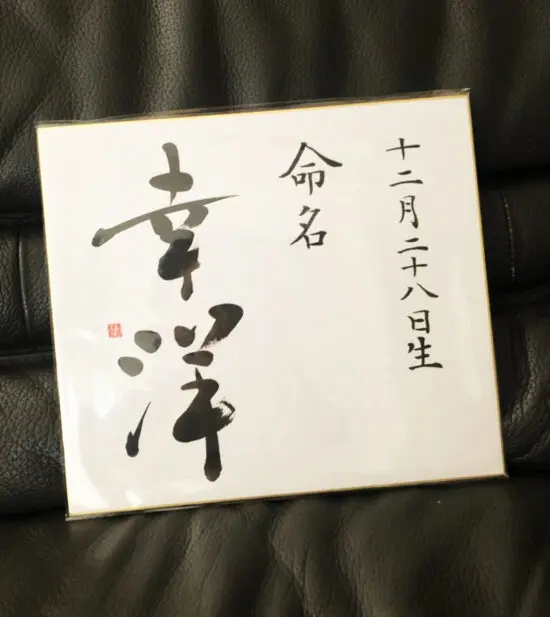 十二月二十八日生
命名
幸洋